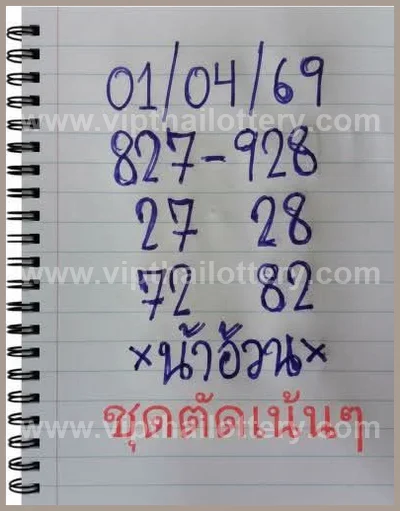 01/04/69
www.vipthailottery.com
827-928
27 28
www.vipthailottery.com
72 82
×น้าอ้วน×
ชุดตัดเน้นๆ
www.vipthailottery.com